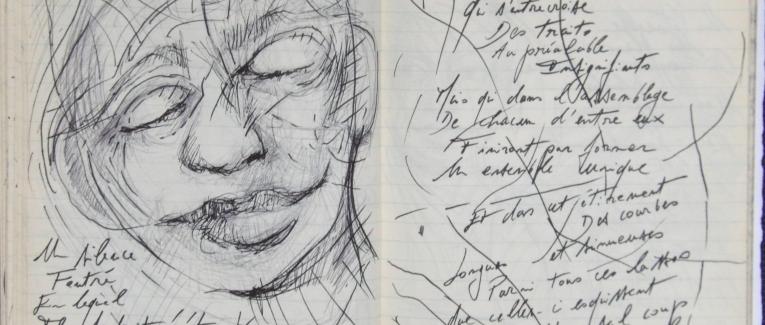 Un silence
Feutré
En lequel
qui s'entrecroise
Des traits
Au préalable
Insignifiants
Mais qui dans l'assemblage
De chacun d'entre eux
Finiront par former
Un ensemble unique
Et dans cet étirement
Des courbes
Longues et sinueuses
Parmi tous ces
que celles-ci esquissent
coup